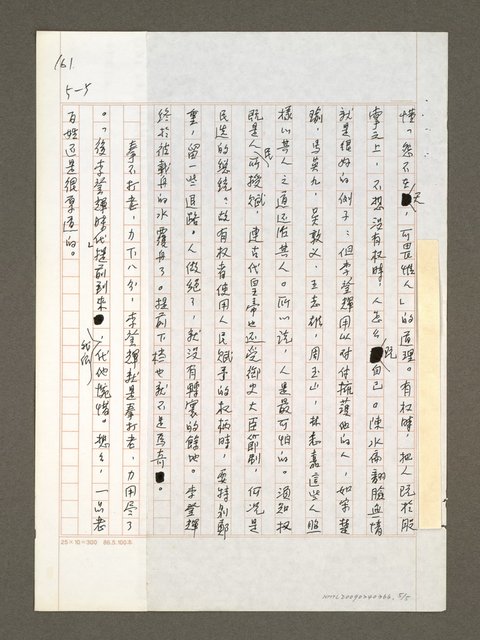 161
5-5
懂「怨不在天,可畏惟人」的道理。有权時,把人玩於股
掌之上,不想沒有权時,人怎么玩自己。陳水扁翻臉無情
就是很好的例子;但李登輝用以对付擁護他的人,如宋楚
瑜,馬英九,吳敦义,王志雄,周玉山,林志嘉這些人照
樣以其人之道还治其人。所以說,人是最可怕的。須知权
既是人民所授賦,連古代皇帝也还受御史大臣節制,何况是
民选的總統。故有权者使用人民賦予的权柄時,要特別鄭
重,留一些退路。人做絕了,就沒有轉寰的餘地。李登輝
終於被載舟的水覆舟了。提前下檯也就不足為奇。
拳不打老,力下八分,李登輝就是拳打老,力用尽了
。「後李登輝時代」提前到來,我們代他惋惜。想想,一點老
百姓还是很厚道的。
25×10=300 86.5.100本
NMTL20090240366, 5/5